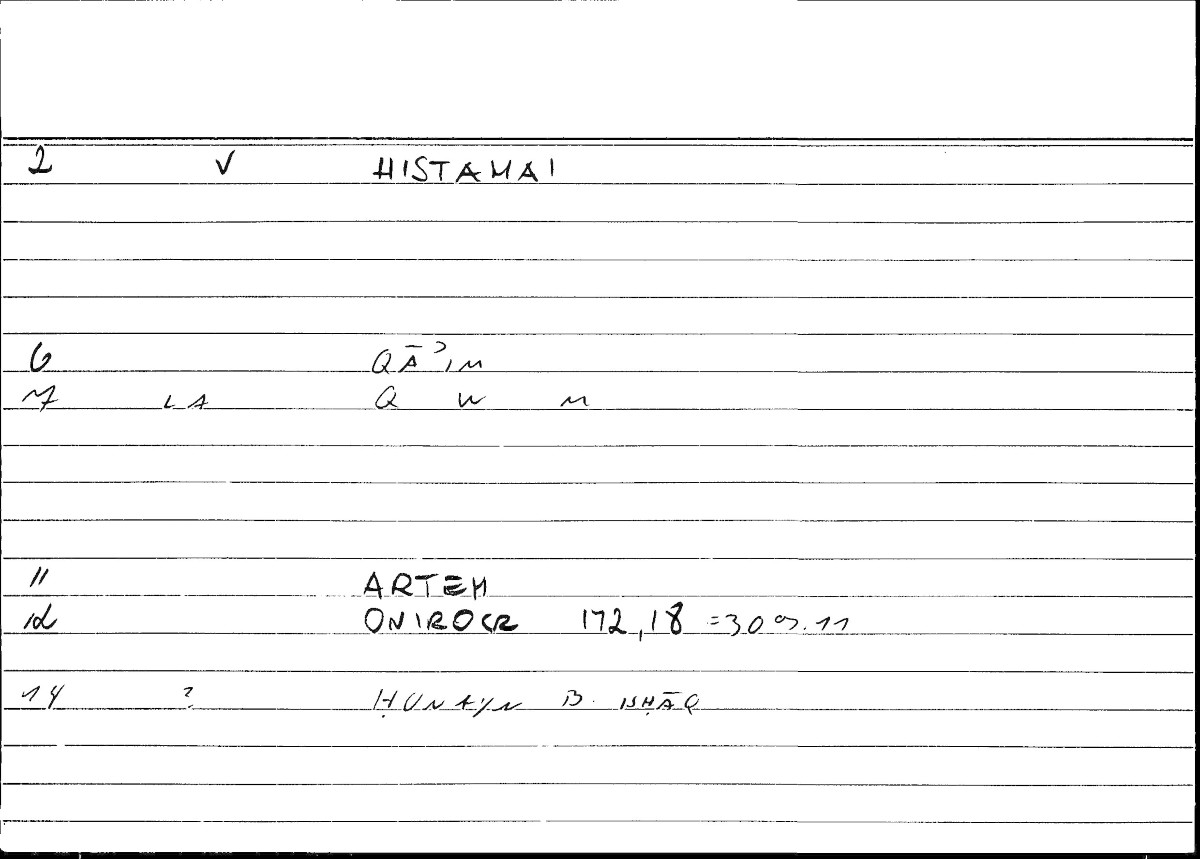 2 V HISTAMAI
6 QĀʾIM
7 LA Q W M
11 ARTEM
12 ONIROCR 172,18 =309.11
14 ? ḤUNAYN B. ISḤĀQ